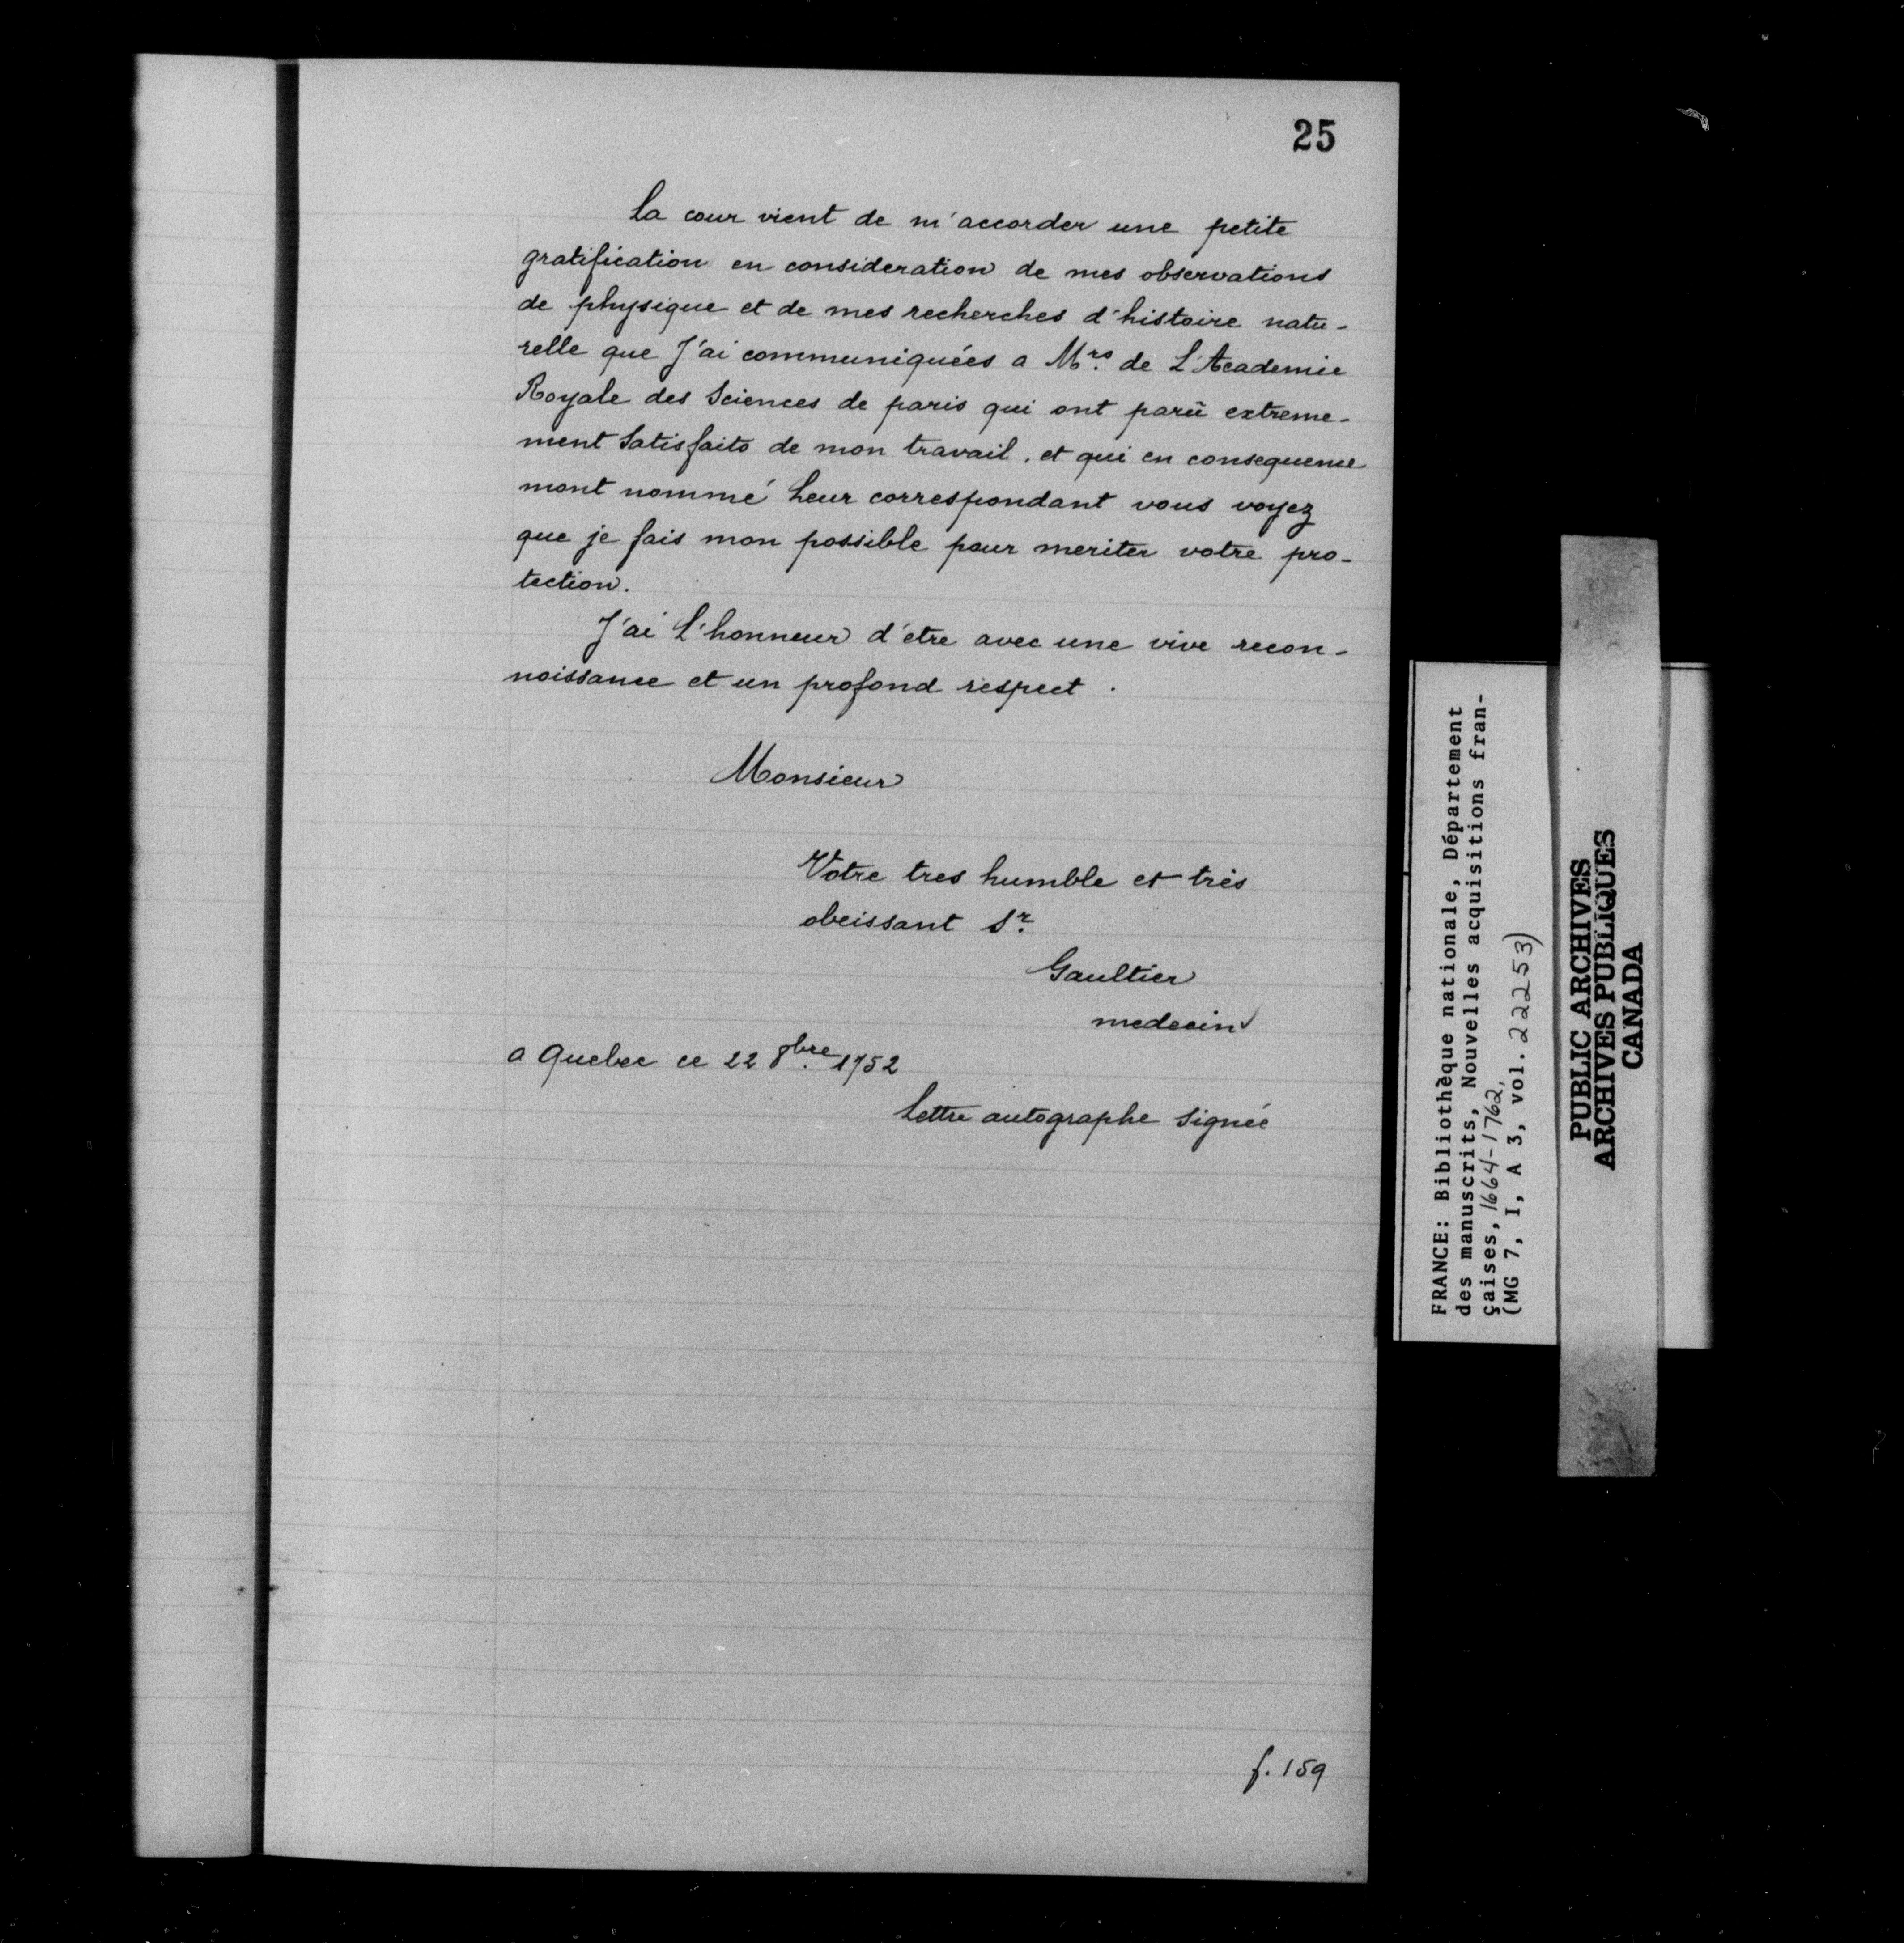 25
La cour vient de m'accorder une petite
gratification en consideration de mes observations
de physique et de mes recherches d'histoire natu-
relle que J'ai communiquées a Mrs. de L'Academie
Royale des Sciences de paris qui ont parû extreme-
ment Satisfaits de mon travail, et qui en consequence
mont nommé Leur correspondant vous voyez
que je fais mon possible pour meriter votre pro-
tection.
J'ai L'honneur d'etre avec une vive recon-
noissance et un profond respect.
Monsieur
Votre tres humble et très
obeissant Sr.
Gaultier
medecin
a Quebec ce 22 8bre. 1752
Lettre autographe signée
f. 159
FRANCE: Bibliothèque nationale, Département
des manuscrits, Nouvelles acquisitions fran-
çaises, 1664-1762,
(MG 7, I, A 3, vol. 22253)
PUBLIC ARCHIVES
ARCHIVES PUBLIQUES
CANADA